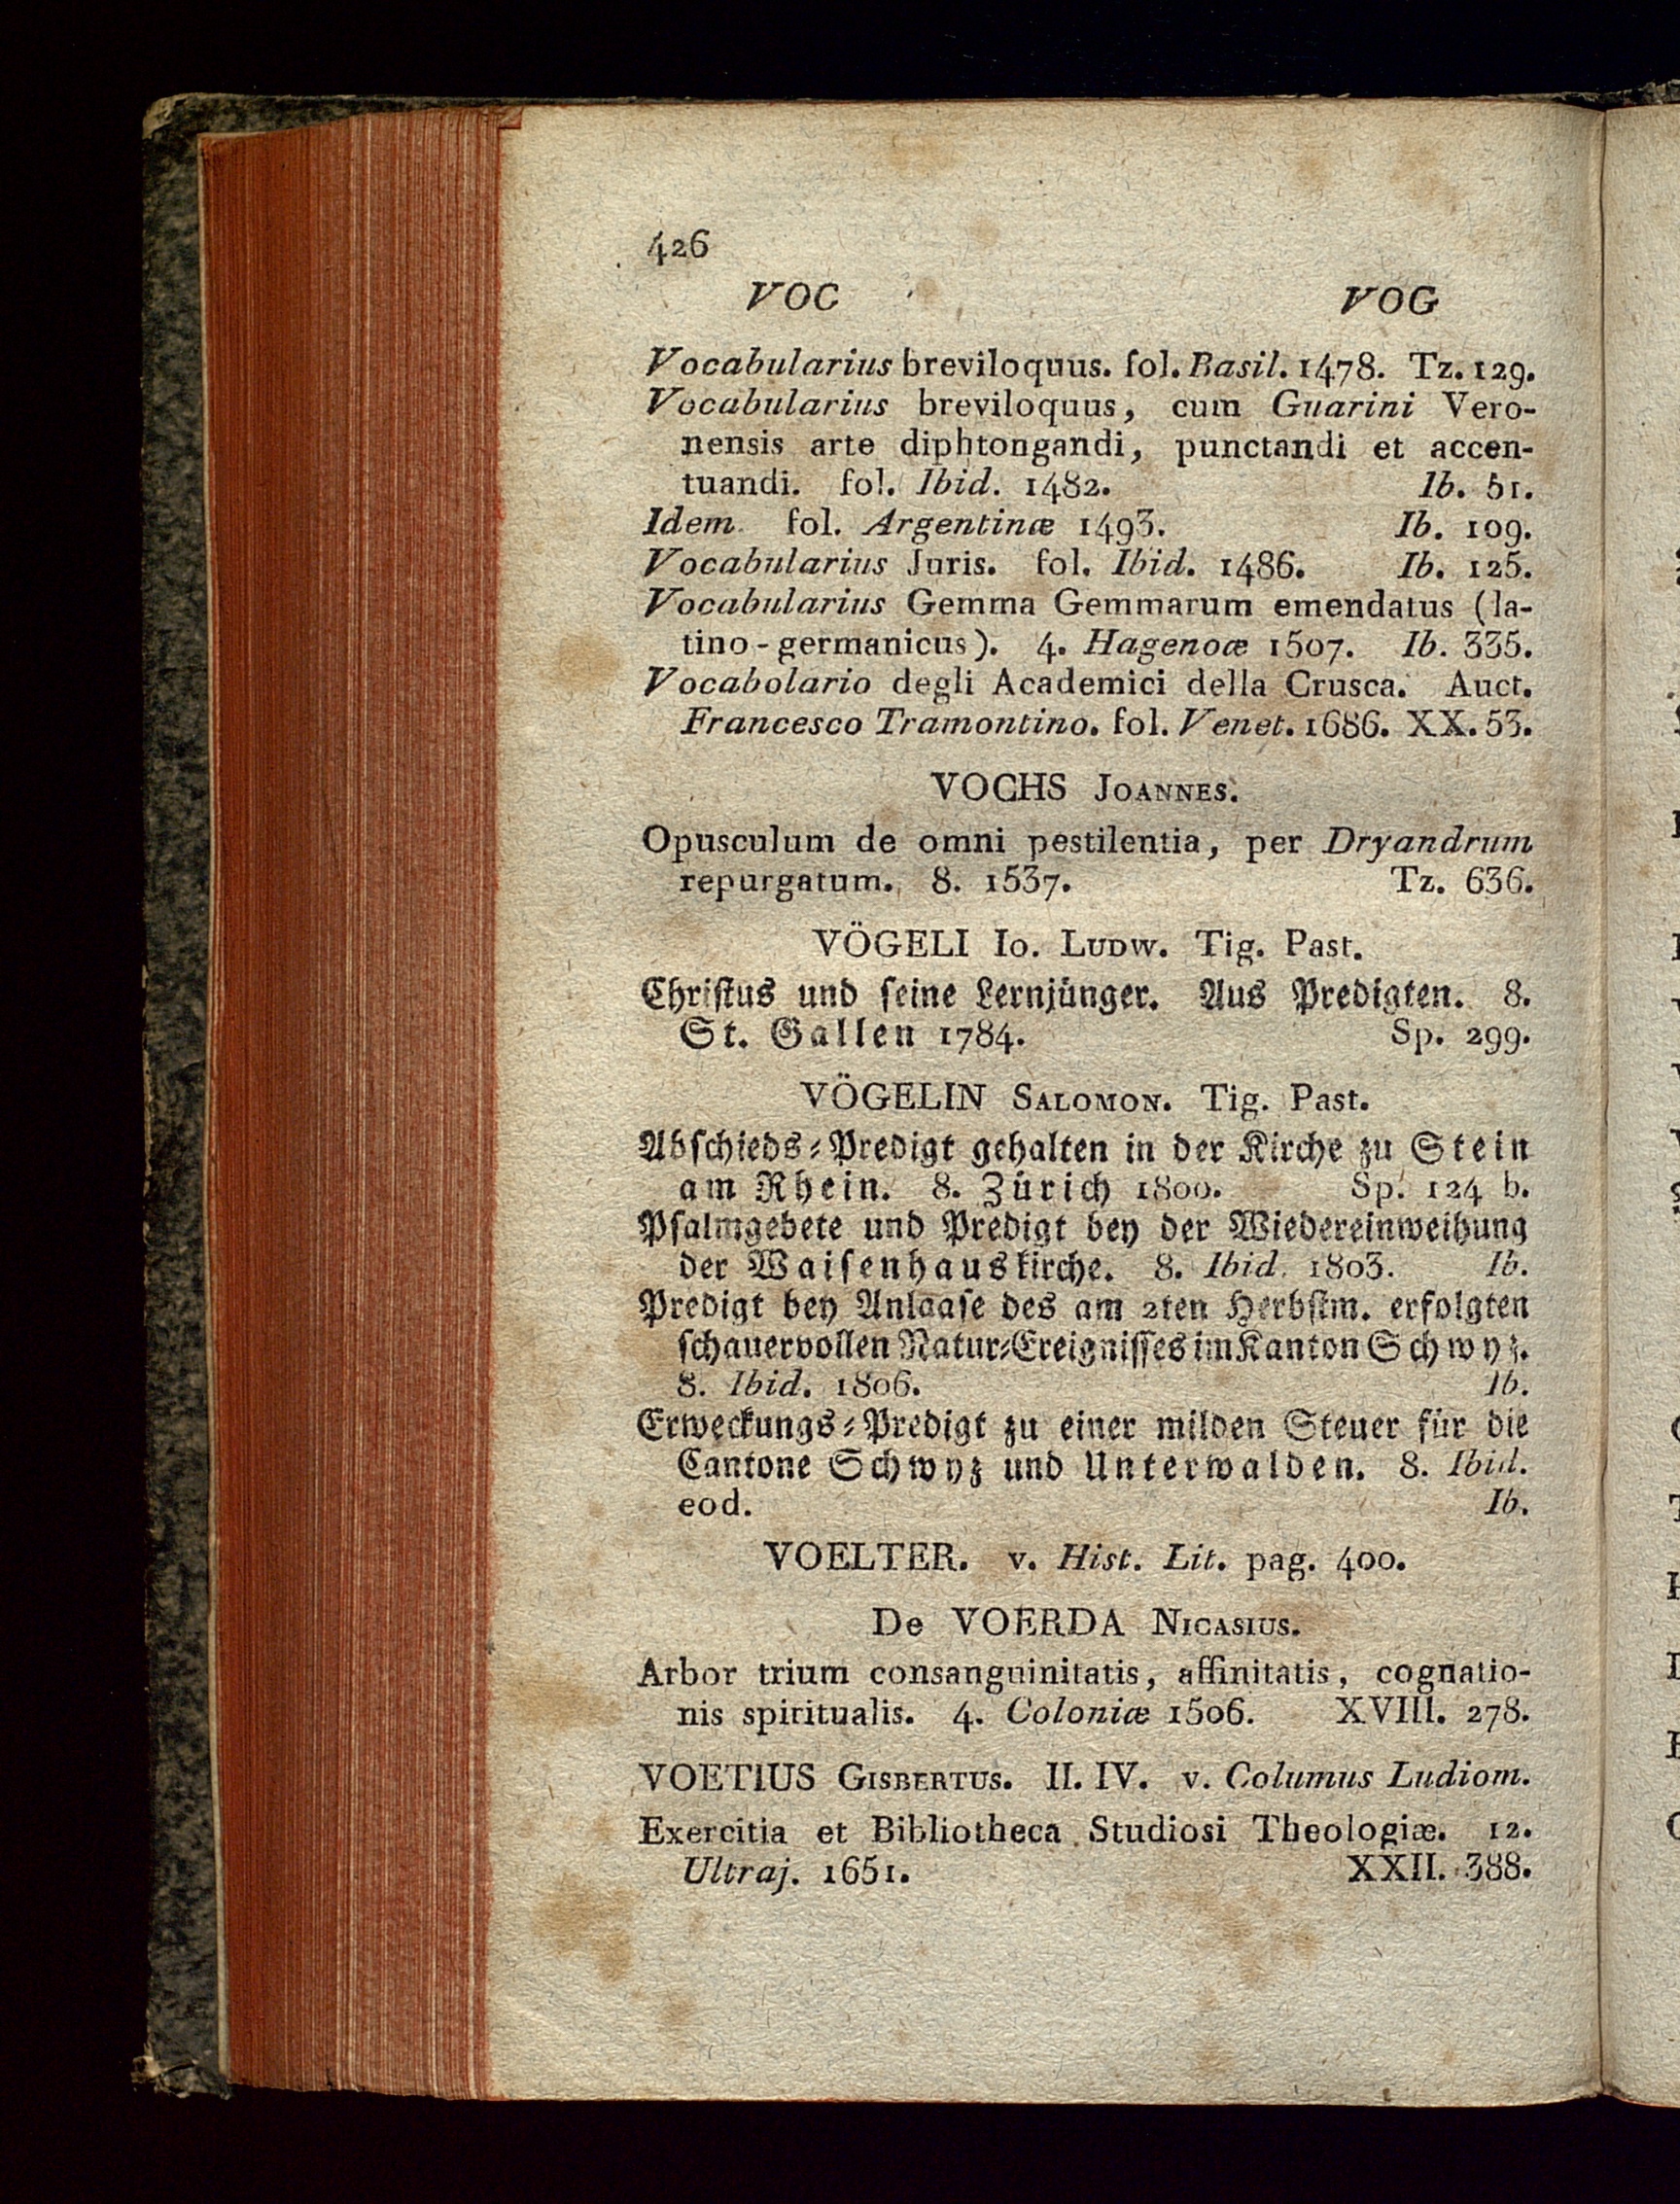 426
VOC VOG
Vocabularius breviloquus. fol. Basil. 1478. Tz. 129.
Vocabularius breviloquus, cum Guarini Vero-
nensis arte diphtongandi, punctandi et accen-
tuandi. fol. Ibid. 1482. Ib. 51.
Idem fol. Argentinæ 1493. Ib. 109.
Vocabularius Juris. fol. Ibid. 1486. Ib. 125.
Vocabularius Gemma Gemmarum emendatus (la-
tino-germanicus). 4. Hagenoæ 1507. Ib. 335.
Vocabolario degli Academici della Crusca. Auct.
Francesco Tramontino. fol. Venet. 1686. XX. 53.
VOCHS JOANNES.
Opusculum de omni pestilentia, per Dryandrum
repurgatum. 8. 1537. Tz. 636.
VÖGELI IO. LUDW. Tig. Past.
Christus und seine Lernjünger. Aus Predigten. 8.
St. Gallen 1784. Sp. 299.
VÖGELIN SALOMON. Tig. Past.
Abschieds-Predigt gehalten in der Kirche zu Stein
am Rhein. 8. Zürich 1800. Sp. 124 b.
Psalmgebete und Predigt bey der Wiedereinweihung
der Waisenhauskirche. 8. Ibid. 1803. Ib.
Predigt bey Anlaase des am 2ten Herbstm. erfolgten
schauervollen Natur-Ereignisses im Kanton Schwyz.
8. Ibid. 1806. Ib.
Erweckungs-Predigt zu einer milden Steuer für die
Cantone Schwyz und Unterwalden. 8. Ibid.
eod. Ib.
VOELTER. v. Hist. Lit. pag. 400.
De VOERDA NICASIUS.
Arbor trium consanguinitatis, affinitatis, cognatio-
nis spiritualis. 4. Coloniæ 1506. XVIII. 278.
VOETIUS GISBERTUS. II. IV. v. Columus Ludiom.
Exercitia et Bibliotheca Studiosi Theologiæ. 12.
Ultraj. 1651. XXII. 388.